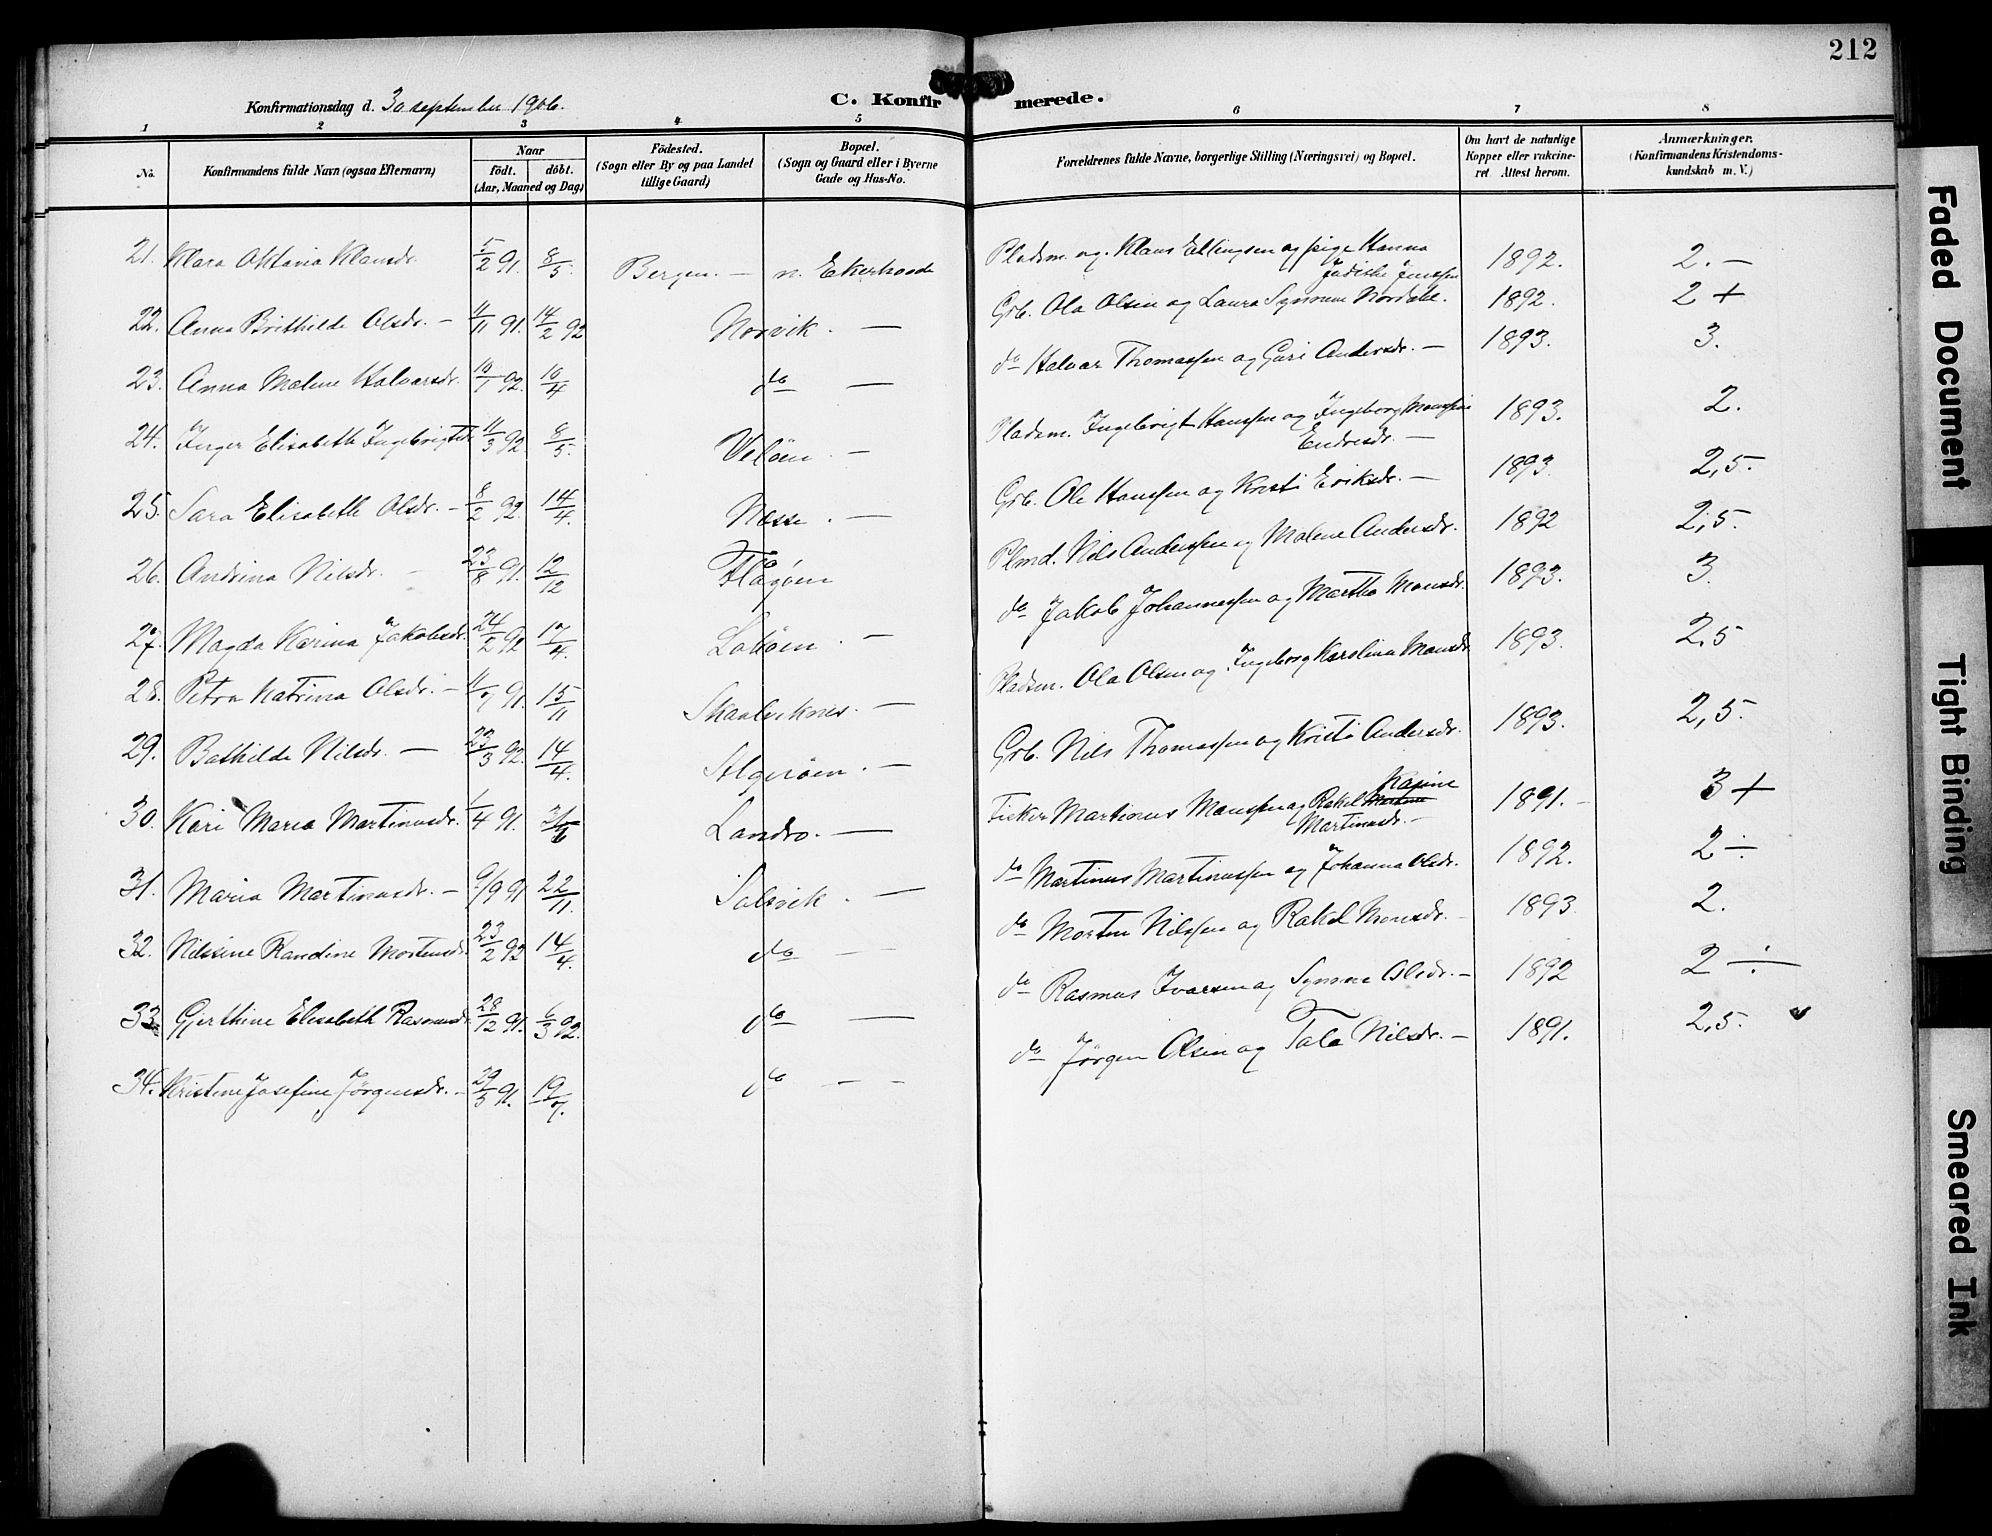 212
Konfirmationsdag d. 30 september 1906.
C. Konfirmerede.
1 2 3 4 5 6 7 8
No.
Konfirmandens fulde Navn (ogsaa Efternavn)
Naar
født. døbt.
(Aar, Maaned og Dag)
Fødested.
(Sogn eller By og paa Landet
tillige Gaard)
Bopæl.
(Sogn og Gaard eller i Byerne
Gade og Hus-No.
Forældrenes fulde Navne, borgerlige Stilling (Næringsvei) og Bopæl.
Om havt de naturlige
Kopper eller vakcine-
ret Attest herom.
Anmærkninger.
(Konfirmandens Kristendoms-
kundskab m. V.)
21. Klara Oktavia Klausdr. 5/2 91. 8/5. Bergen. — n. Ekerhovde Pladsm. og. Klaus Ellingsen og pige Hanna Jenssen 1892. 2. —
22. Anna Brithilde Olsdr. — 11/11 91. 14/2 92 Norvik. — Grb. Ola Olsen og Laura Synneve Nordal. 1892. 2 +
23. Anna Malene Halvarsdr. 10/1 92. 10/4 do — do Halvar Thomassen og Guri Andersdr. — 1893. 3.
24. Inger Elisabeth Ingebrigtsdr. 11/3 92. 8/5. Veløen. — Pladsm. Ingebrigt Hanssen og Ingeborg Monsine Endresdr. — 1893. 2.
25. Sara Elisabeth Olsdr. — 8/2 92. 14/4. Nesse. — Grb. Ole Hanssen og Kristi Eriksdr. — 1893. 2,5.
26. Andrina Nilsdr. — 23/8 91. 12/12 Flagøen Plmd. Nils Anderssen og Malene Andersdr. 1892 2,5.
27. Magda Karina Jakobsdr. 24/2 92 17/4. Lokøen. — do Jakob Johannessen og Martha Monsdr. 1893. 3.
28. Petra Katrina Olsdr. — 91. 15/11 Skaalviknes. — Pladsm. Ola Olsen og Ingeborg Karolina Monsdr. 1893. 2,5
29. Bathilde Nilsdr. — 23/3 92. 14/4. Algerøen. — Grb. Nils Thomassen og Kristi Andersdr. 1893. 2,5.
30. Kari Maria Martinusdr. 1/4 91. Landro. — Fisker Martinus Monssen og Rakel Kasine Martinusdr. — 1891. — 3 +
31. Maria Martinusdr. — 9/9 91 22/11. Solsvik. — do Martinus Martinussen og Johanna Olsdr. 1892. 2 ÷
32. Nilsine Randine Mortensdr. 23/2 92 14/4. do — do Morten Nilssen og Rakel Monsdr. — 1893. 2.
33. Gjerthine Elisabeth Rasmusdr. 28/12 91. 6/3 92. do — do Rasmus Ivarsen og Synneve Olsdr. — 1892 2 ÷
34. Kristine Josefine Jørgensdr. — 29/5 91. 19/7. do — — do Jørgen Olsen og Tala Nilsdr. — 1891. 2,5.
Faded Document
Tight Binding
Smeared Ink